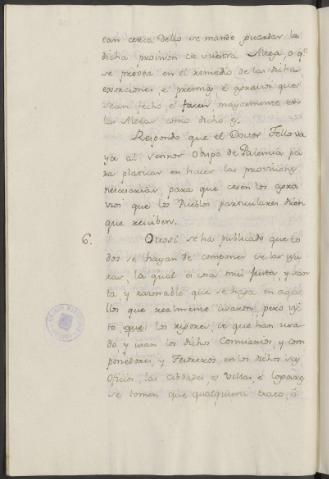 can cerca dello se mande guardar la
dicha provision de vuestra Alteza, o qe
se provea en el remedio de las dichas
exsaciones, é premias é agravios que
sean fecho é facen, mayormente en
la Mesta como dicho es.
Respondo que el Doctor Tello va
ya al Sennor Obispo de Palencia pa
ra platicar en hacer las provisiones
necesarias para que cesen los agra
vios que los Pueblos particulares dicen
que reciben.
6. Otrosi se ha publicado que to
dos se hayan de componer de las usu
ras, la qual es cosa mui justa, y san
ta y razonable que se haga en aque
llos que realmente usaron, pero vis
to que los rigores, de que han usa
do y usan los dichos Comisarios, y com
ponedores, y Tesoreros, en los dichos sus
Oficios, las Cibdades, é Villas, é Logares
se temen que qualquiera trato, ó